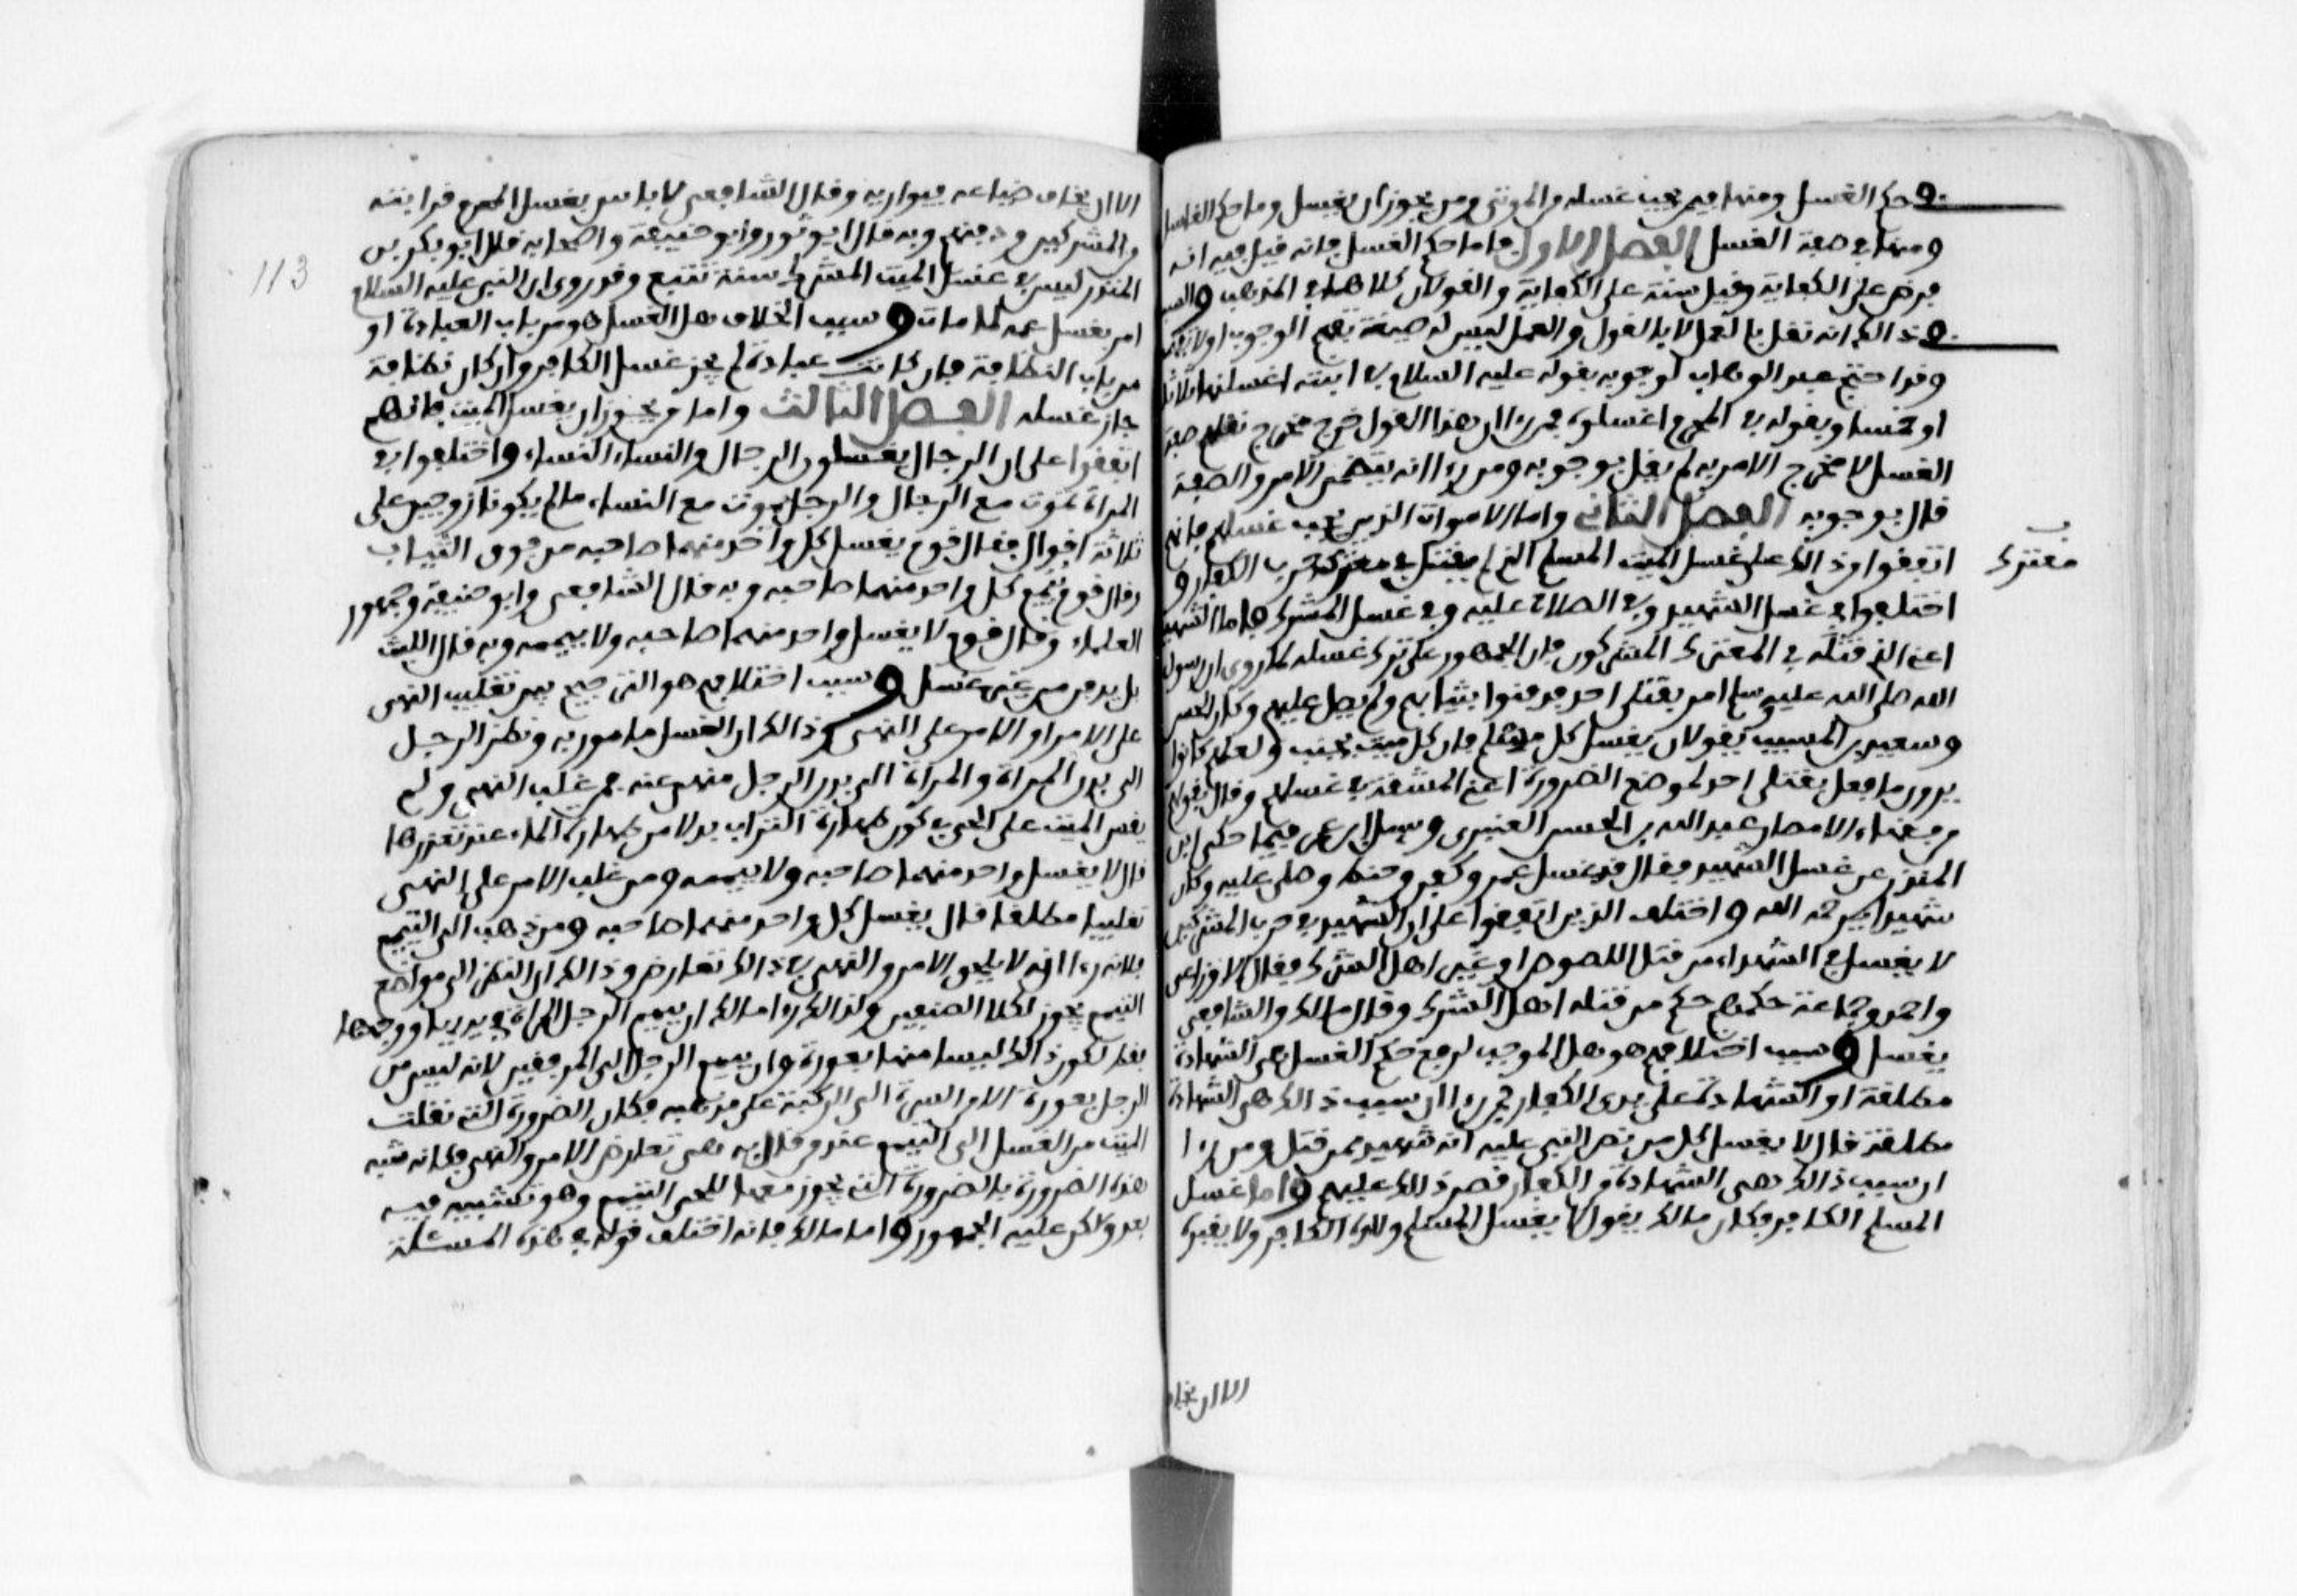 حكم الغسل ومنها فيمن يجب غسله من الموتى ومن يجوز ان يغسل وما حكم الغاسل
ومنها في صفة الغسل الفصل الاول فاما حكم الغسل فانه قيل فيه انه
فرض على الكفاية وقيل سنة على الكفاية والقولان كلاهما في المذهب والسبب
في ذالك انه نقل بالعمل لا بالقول والعمل ليس له صيغة تفهم الوجوب او لا تفهمه
وقد احتج عبد الوهاب لوجوبه بقوله عليه السلام في ابنته اغسلنها ثلاثا
او خمسا وبقوله في المحرم اغسلوه فمن رءا ان هذا القول خرج مخرج تعليم صفة
الغسل لا مخرج الامر به لم يقل بوجوبه ومن رءا انه يتضمن الامر والصفة
قال بوجوبه الفصل الثاني واما الاموات الذين يجب غسلهم فانهم
اتفقوا من ذالك على غسل الميت المسلم الذي لم يقتل في معترك حرب الكفار و
معترك
اختلفوا في غسل الشهيد وفي الصلاة عليه وفي غسل المشرك فاما الشهيد
اعني الذي قتله في المعترك المشركون فان الجمهور على ترك غسله لما روي ان رسول
الله صلى الله عليه وسلم امر بقتلى احد فدفنوا بثيابهم ولم يصل عليهم وكان الحسن
وسعيد بن المسيب يقولان يغسل كل مسلم فان كل ميت يجنب ولعلهم كانوا
يرون ما فعل بقتلى احد لموضع الضرورة اعني المشقة في غسلهم وقال بقولهم
من فقهاء الامصار عبيد الله بن الحسن العنبري وسئل ابن عمر فيما حكى ابن
المنذر عن غسل الشهيد فقال قد غسل عمر وكفن وحنط وصلي عليه وكان
شهيدا يرحمه الله واختلف الذين اتفقوا على ان الشهيد في حرب المشركين
لا يغسل في الشهداء من قتل اللصوص او غير اهل الشرك فقال الاوزاعي
واحمد وجماعة حكمهم حكم من قتله اهل الشرك وقال مالك والشافعي
يغسل وسبب اختلافهم هو هل الموجب لرفع حكم الغسل هي الشهادة
مطلقة او الشهادة على يدي الكفار فمن رءا ان سبب ذالك هي الشهادة
مطلقة قال لا يغسل كل من نص النبي عليه انه شهيد ممن قتل ومن رءا
ان سبب ذالك هي الشهادة من الكفار قصر ذالك عليهم واما غسل
المسلم الكافر فكان مالك يقول لا يغسل المسلم والده الكافر ولا يقبره
الا ان يخاف
113
الا ان يخاف ضياعه فيواريه وقال الشافعي لا باس بغسل المسلم قرابته
والمشركين ودفنهم وبه قال ابو ثور وابو حنيفة واصحابه قال ابو بكر بن
المنذر ليس في غسل الميت المشرك سنة تتبع وقد روي ان النبي عليه السلام
امر بغسل عمه لما مات وسبب الخلاف هل الغسل هو من باب العبادة او
من باب النظافة فان كانت عبادة لم يجز غسل الكافر وان كان نظافة
جاز غسله الفصل الثالث واما من يجوز ان يغسل الميت فانهم
اتفقوا على ان الرجال يغسلون الرجال والنساء النساء واختلفوا في
المراة تموت مع الرجال والرجل يموت مع النساء ما لم يكونا زوجين على
ثلاثة اقوال فقال قوم يغسل كل واحد منهما صاحبه من فوق الثياب
وقال قوم ييمم كل واحد منهما صاحبه وبه قال الشافعي وابو حنيفة وجمهور
العلماء وقال قوم لا يغسل واحد منهما صاحبه ولا ييممه وبه قال الليث
بل يدفن من غير غسل وسبب اختلافهم هو الترجيح بين تغليب النهي
على الامر او الامر على النهي وذالك ان الغسل مامور به ونظر الرجل
الى بدن المراة والمراة الى بدن الرجل منهي عنه فمن غلب النهي ولم
يقس الميت على الحي في كون طهارة التراب بدلا من طهارة الماء عند تعذرها
قال لا يغسل واحد منهما صاحبه ولا ييممه ومن غلب الامر على النهي
تغليبا مطلقا قال يغسل كل واحد منهما صاحبه ومن ذهب الى التيمم
فلانه رءا انه لا يلحق الامر والنهي في ذالك تعارض وذالك ان النظر الى مواضع
التيمم يجوز لكلا الصنفين ولذالك رءا مالك ان ييمم الرجل المراة في يديها ووجهها
فقط لكون ذالك ليسا منها بعورة وان ييمم الرجل الى المرفقين لانه ليس من
الرجل بعورة الا من السرة الى الركبة على مذهبه فكان الضرورة التي نقلت
الميت من الغسل الى التيمم عند من قال به هي تعارض الامر والنهي فكانه شبه
هذه الضرورة بالضرورة التي يجوز معها للحي التيمم وهو تشبيه فيه
بعد ولاكن عليه الجمهور واما مالك فانه اختلف قوله في هذه المسئلة